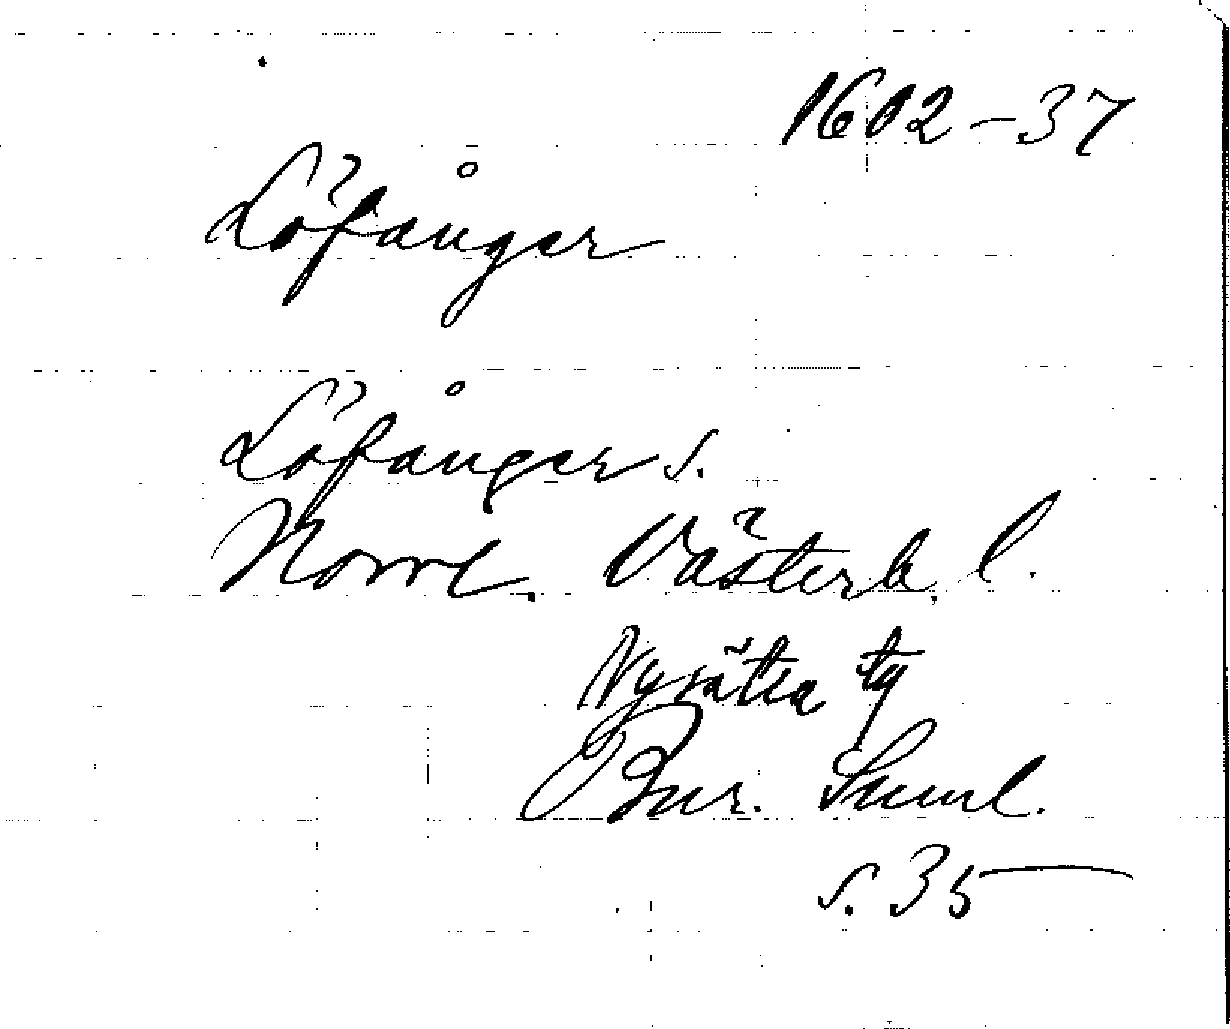 1602-37
Löfånger
Löfånger s.
Norrl. Västerb. l.
Nysätra tg
Bur. Saml.
s. 35